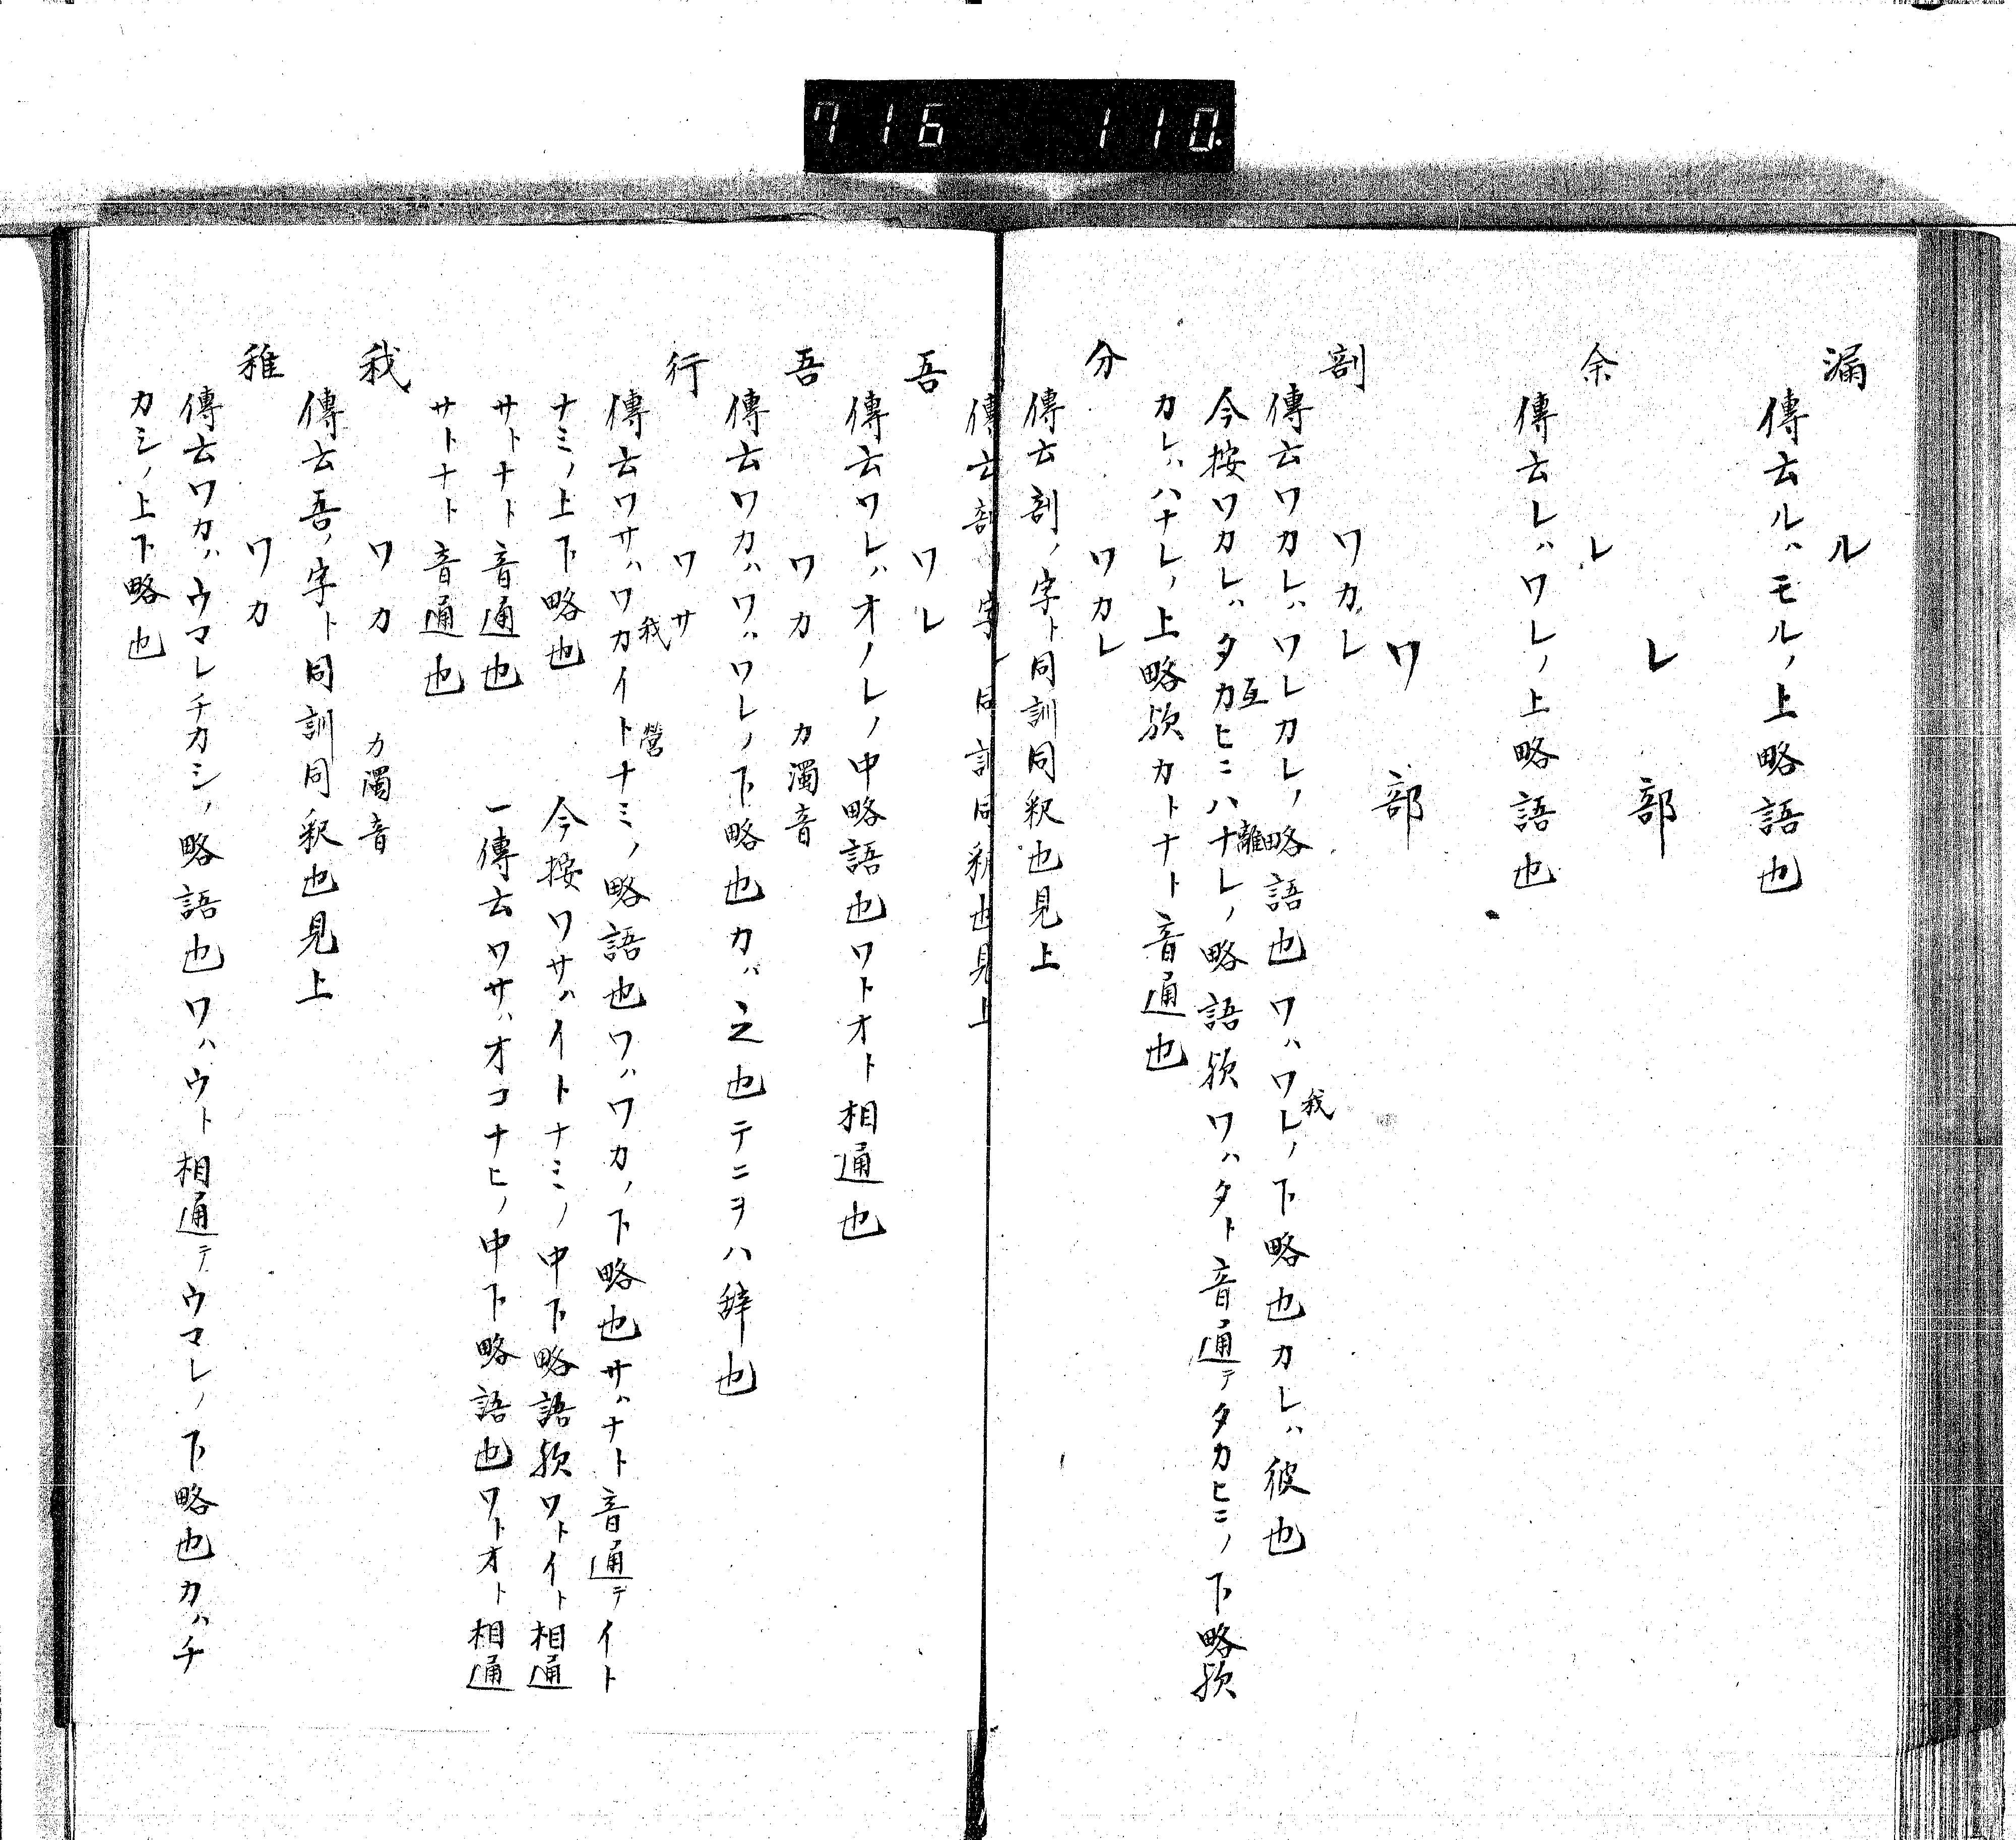 716 110
漏 ル
傳云ルハモルノ上略語也
レ 部
余 レ
傳云レハワレノ上略語也
ワ 部
剖 ワカレ
傳云ワカレハワレカレノ略語也ワハワレ我ノ下略也カレハ彼也
今按ワカレハタカヒニ互ハナレ離ノ略語欤ワハタト音通テタカヒニノ下略欤
カレハハナレノ上略欤カトナト音通也
分 ワカレ
傳云剖ノ字ト同訓同釈也見上
傳云剖ノ字ト同訓同釈也見上
吾 ワレ
傳云ワレハオノレノ中略語也ワトオト相通也
吾 ワカ カ濁音
傳云ワカハワハワレノ下略也カハ之也テニヲハ辞也
行 ワサ
傳云ワサハワカ我イトナミ營ノ略語也ワハワカノ下略也サハナト音通テイト
ナミノ上下略也 今按ワサハイトナミノ中下略語欤ワトイト相通
サトナト音通也 一傳云ワサハオコナヒノ中下略語也ワトオト相通
サトナト音通也
我 ワカ カ濁音
傳云吾ノ字ト同訓同釈也見上
稚 ワカ
傳云ワカハウマレチカシノ略語也ワハウト相通テウマレノ下略也カハチ
カシノ上下略也